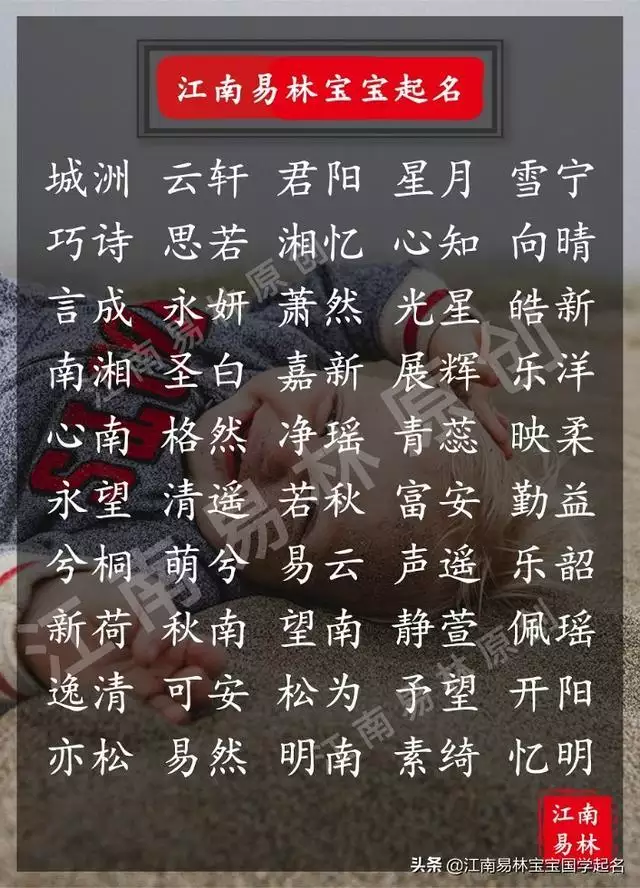 江南易林宝宝起名
城洲 云轩 君阳 星月 雪宁
巧诗 思若 湘忆 心知 向晴
言成 永妍 萧然 光星 皓新
南湘 圣白 嘉新 展辉 乐洋
心南 格然 净瑶 青蕊 映柔
永望 清遥 若秋 富安 勤益
兮桐 萌兮 易云 声遥 乐韶
新荷 秋南 望南 静萱 佩瑶
逸清 可安 松为 予望 开阳
亦松 易然 明南 素绮 忆明
江南易林原创
江南易林原创
江南易林原创
江南
易林
头条 @江南易林宝宝国学起名